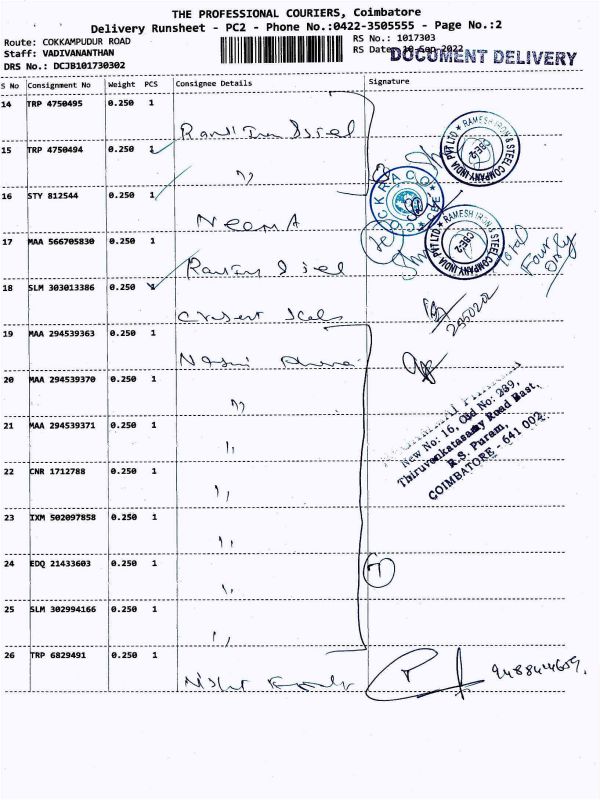 THE PROFESSIONAL COURIERS, Coimbatore
Delivery Runsheet - PC2 - Phone No.:0422-3505555 - Page No.:2
Route: COKKAMPUDUR ROAD
RS No.: 1017303
Staff: VADIVANANTHAN
RS Date: 10-Sep-2022
DOCUMENT DELIVERY
DRS No.: DCJB101730302
S No Consignment No Weight PCS Consignee Details Signature
14 TRP 4750495 0.250 1
15 TRP 4750494 0.250 1
16 STY 812544 0.250 1
Neema
17 MAA 566705830 0.250 1
18 SLM 303013386 0.250 1
19 MAA 294539363 0.250 1
20 MAA 294539370 0.250 1
21 MAA 294539371 0.250 1
22 CNR 1712788 0.250 1
23 IXM 502097858 0.250 1
24 EDQ 21433603 0.250 1
7
25 SLM 302994166 0.250 1
26 TRP 6829491 0.250 1
RAMESH IRON & STEEL COMPANY INDIA PVT LTD
CBE-2
RAMESH IRON & STEEL COMPANY INDIA PVT LTD
CBE-2
Total
Four
only
New No: 16, Old No: 239,
Thiruvenkatasamy Road East,
R.S. Puram,
COIMBATORE - 641 002.